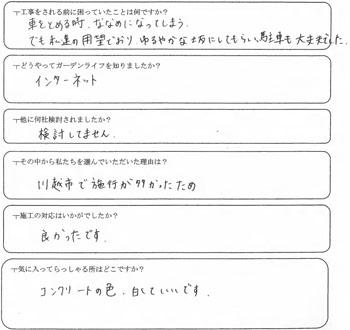 工事をされる前に困っていたことは何ですか?
車をとめる時、ななめになってしまう。
でも私達の用望どおり、ゆるやかな坂にしてもらい、駐車も大丈夫でした。
どうやってガーデンライフを知りましたか?
インターネット
他に何社検討されましたか?
検討してません。
その中から私たちを選んでいただいた理由は?
川越市で施行が多かったため
施工の対応はいかがでしたか?
良かったです。
気に入ってらっしゃる所はどこですか?
コンクリートの色、白していいです。